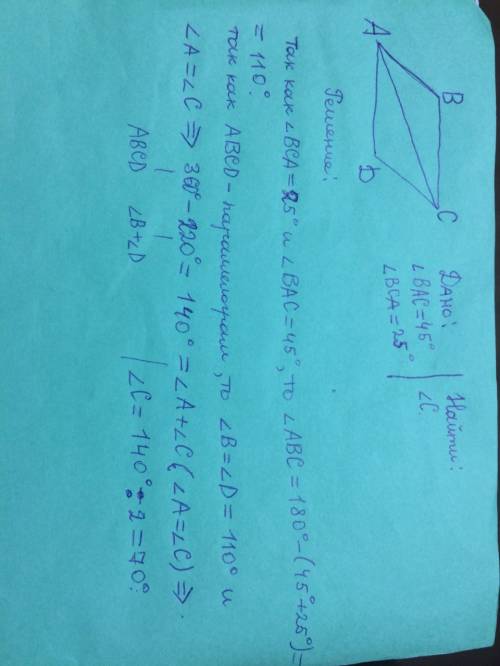 A
B
C
D
Дано:
∠BAC=45°
∠BCA=25°
Найти:
∠C.
Решение:
Так как ∠BCA=25° и ∠BAC=45°, то ∠ABC=180°-(45°+25°)=
=110°.
так как ABCD-параллелограм, то ∠B=∠D=110° и
∠A=∠C ⇒ 360°-220°=140°=∠A+∠C(∠A=∠C) ⇒.
ABCD ∠B+∠D
∠C=140°÷2=70°.